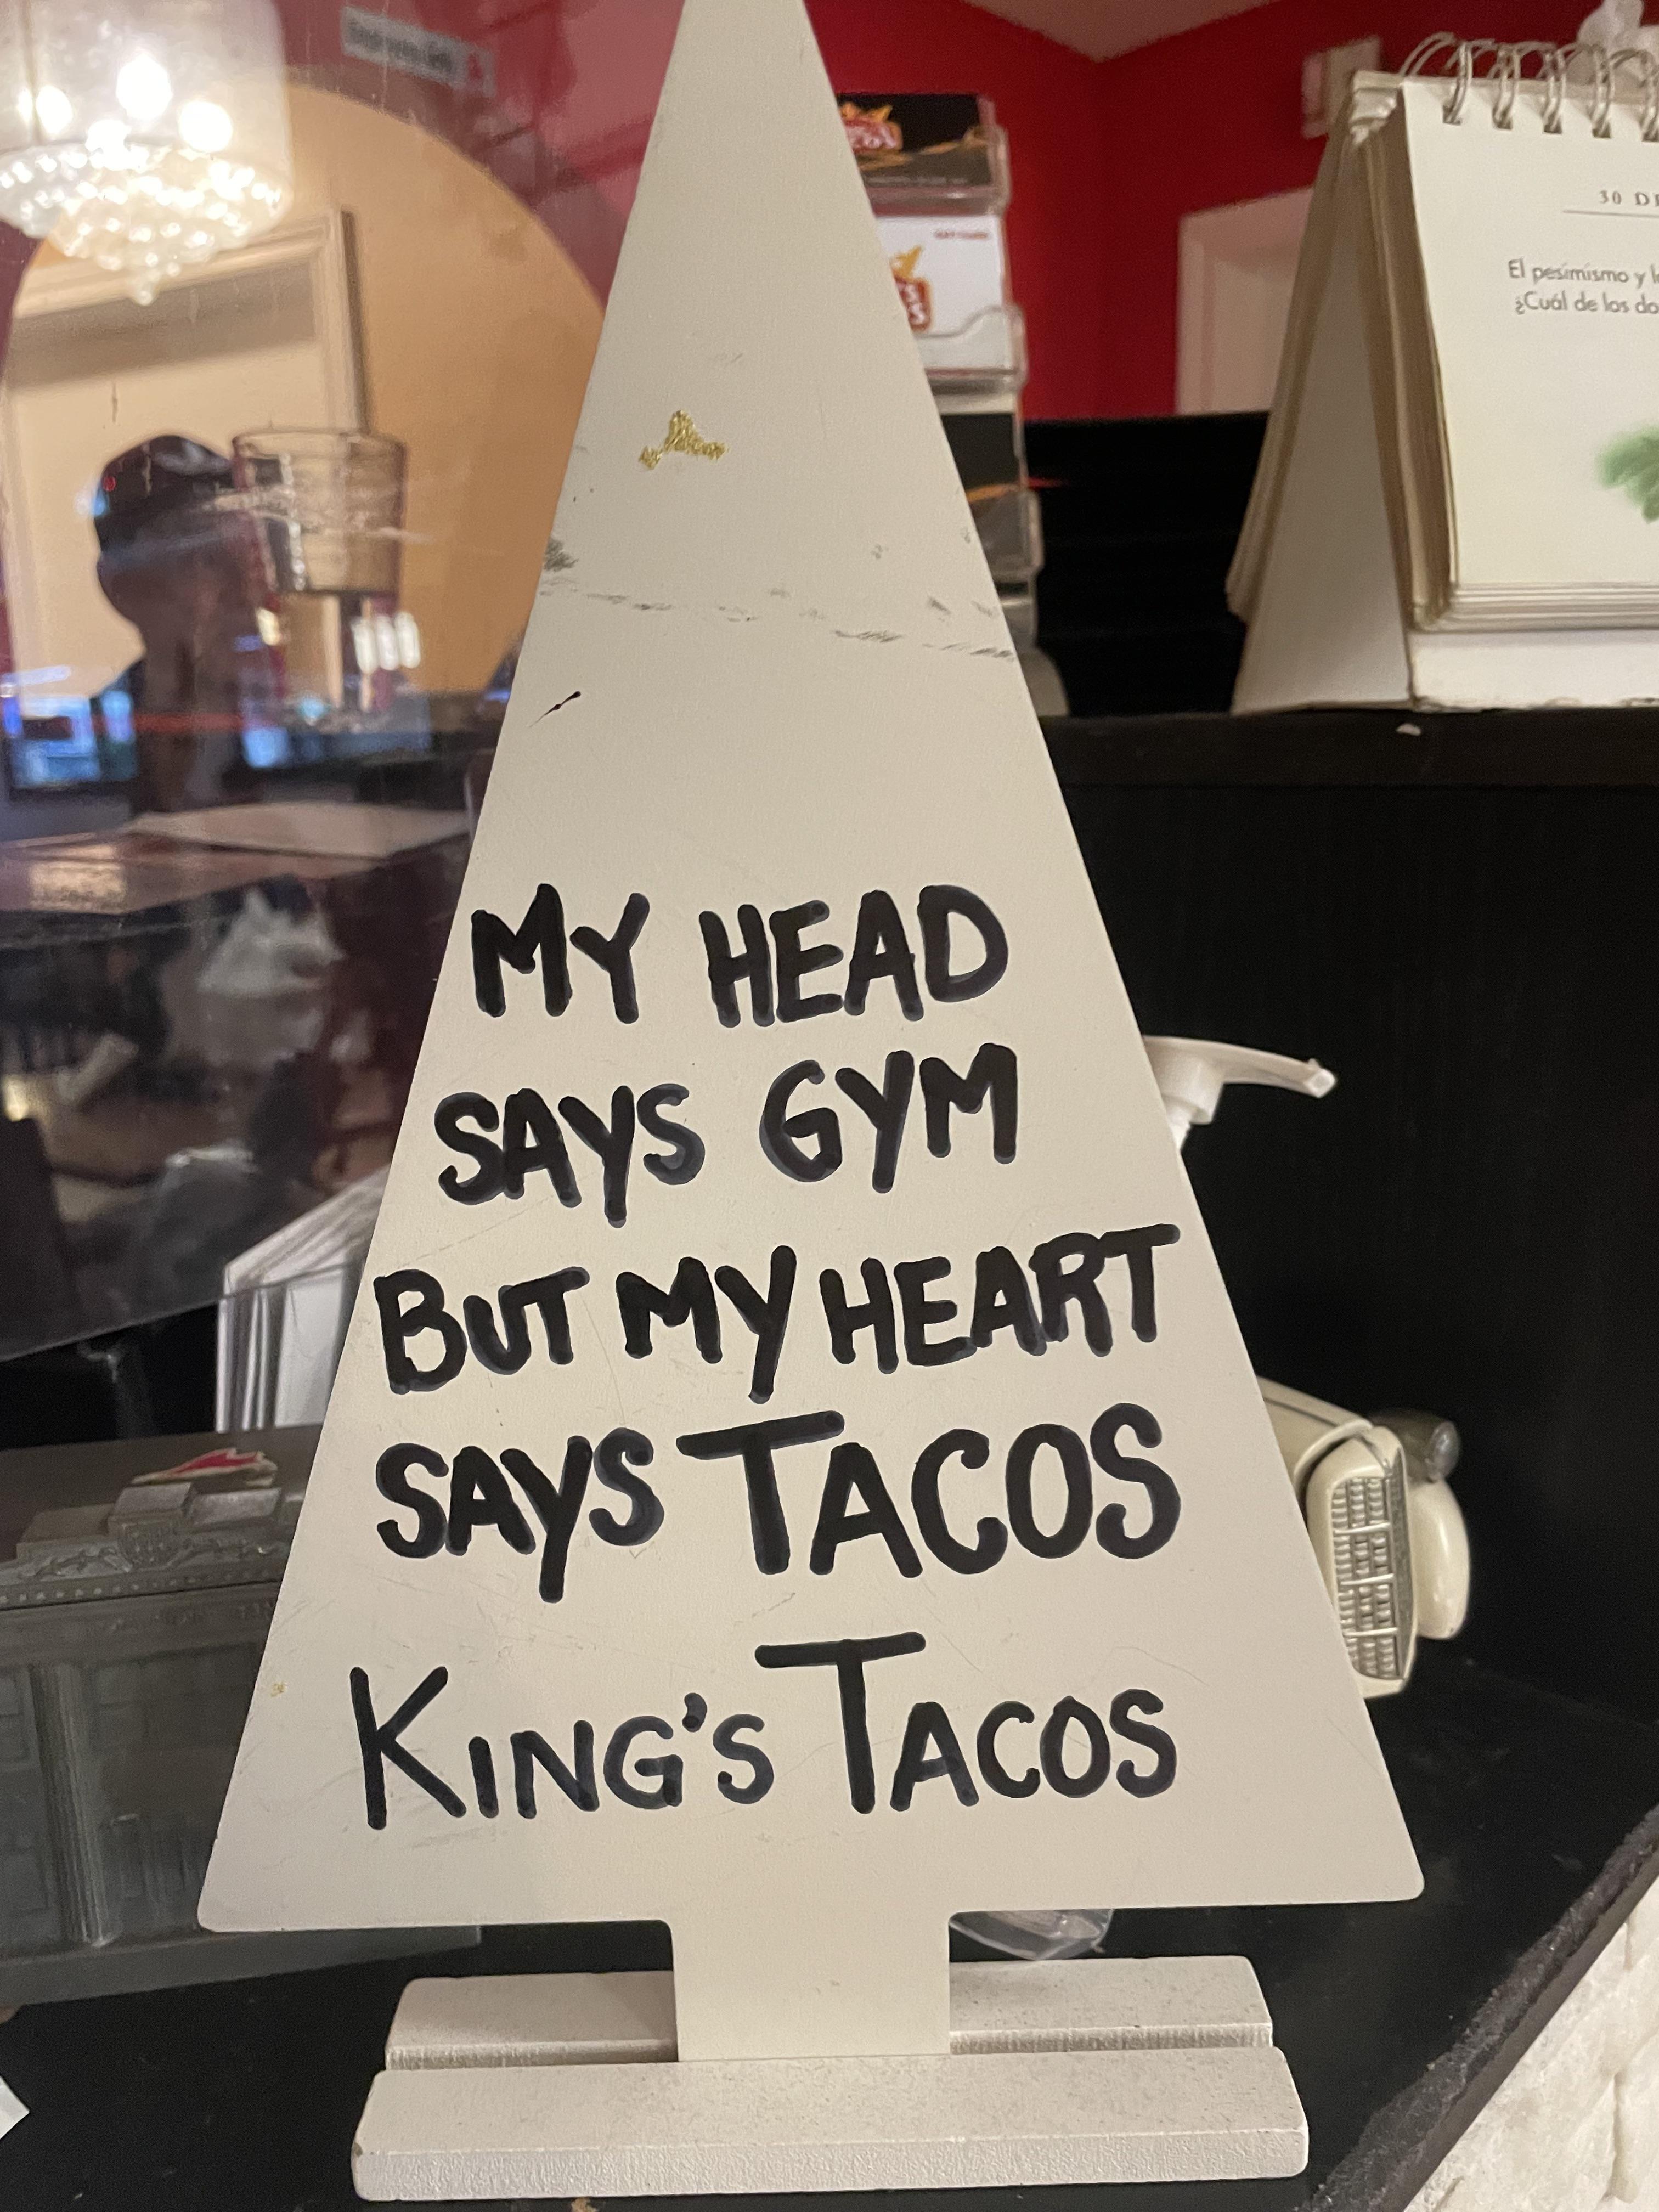 MY HEAD
SAYS GYM
BUT MY HEART
SAYS TACOS
KING'S TACOS
30 DE
El pesimismo y l
¿Cuál de los do